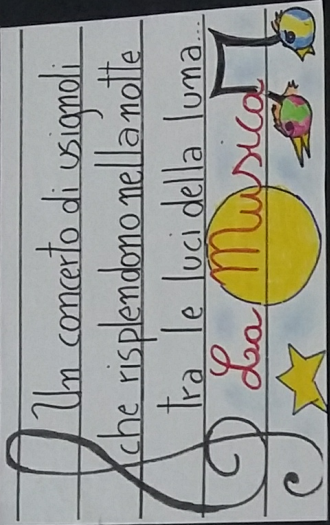 Un concerto di usignoli
che risplendono nella notte
tra le luci della luna...
La Musica